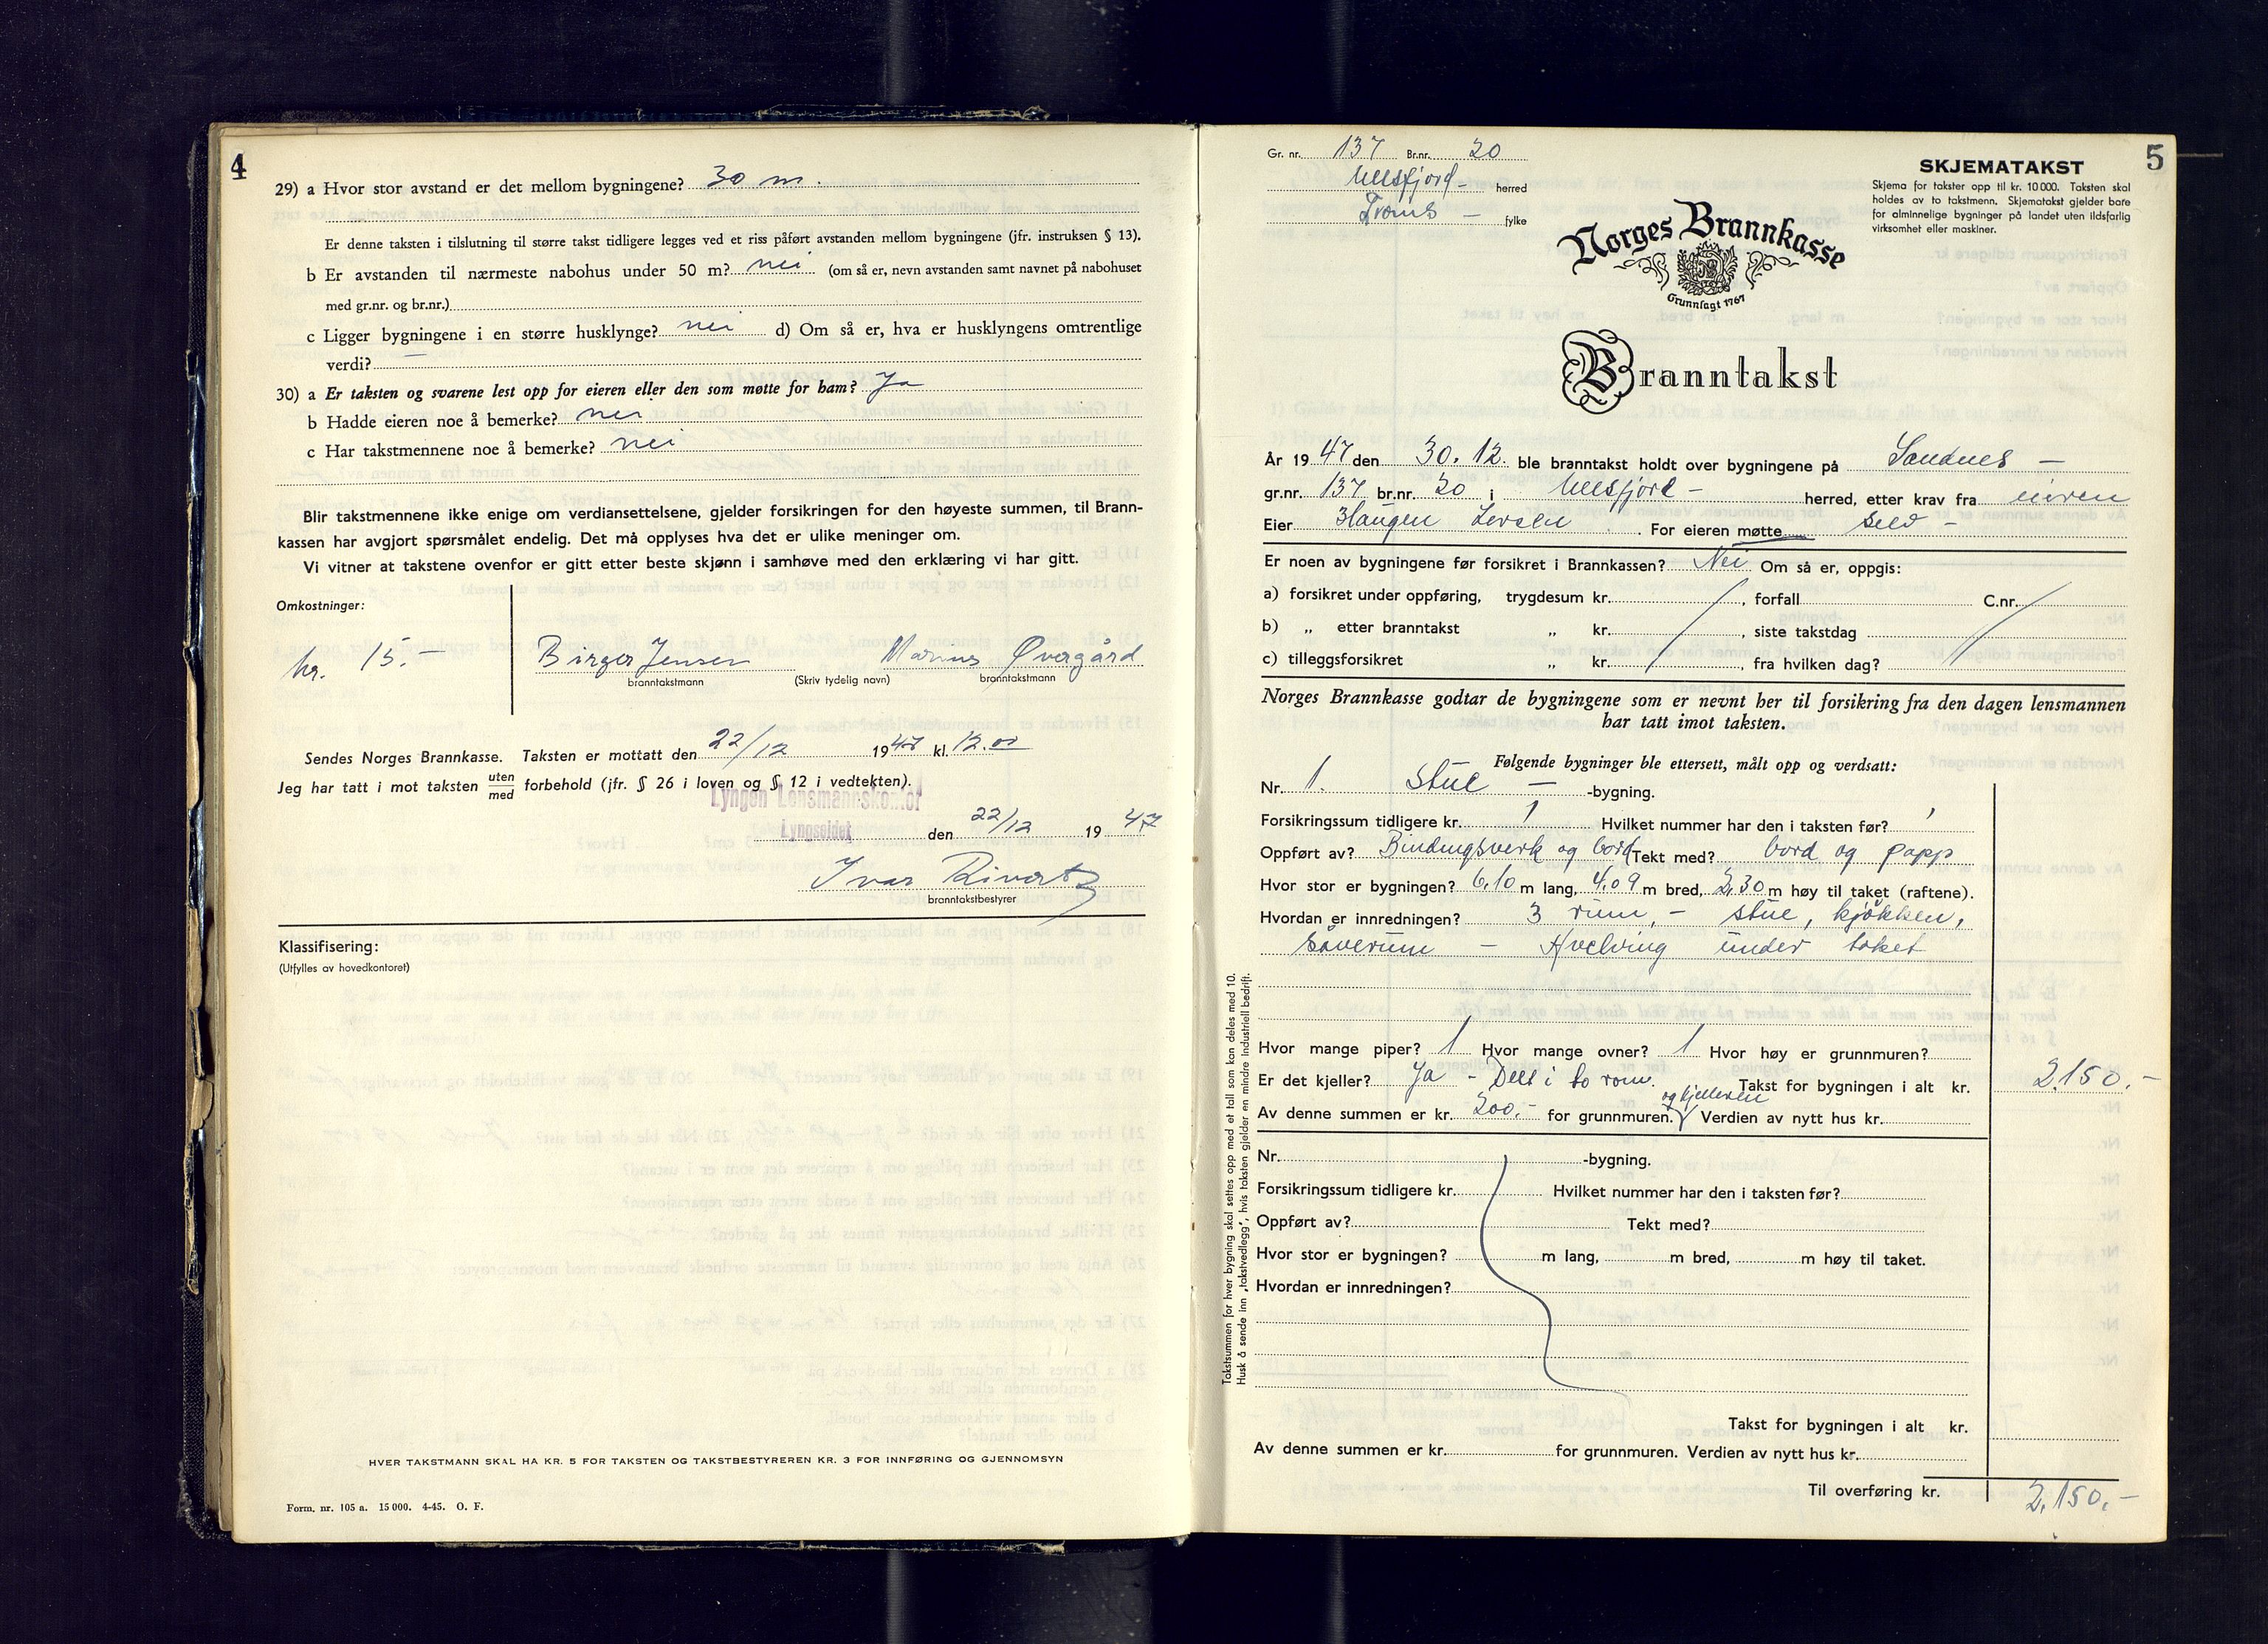 4
29) a Hvor stor avstand er det mellom bygningene? 30 m.
Er denne taksten i tilslutning til større takst tidligere legges ved et riss påført avstanden mellom bygningene (jfr. instruksen § 13).
b Er avstanden til nærmeste nabohus under 50 m? nei (om så er, nevn avstanden samt navnet på nabohuset
med gr.nr. og br.nr.)
c Ligger bygningene i en større husklynge? nei d) Om så er, hva er husklyngens omtrentlige
verdi? —
30) a Er taksten og svarene lest opp for eieren eller den som møtte for ham? Ja
b Hadde eieren noe å bemerke? nei
c Har takstmennene noe å bemerke? nei
Blir takstmennene ikke enige om verdiansettelsene, gjelder forsikringen for den høyeste summen, til Brann-
kassen har avgjort spørsmålet endelig. Det må opplyses hva det er ulike meninger om.
Vi vitner at takstene ovenfor er gitt etter beste skjønn i samhøve med den erklæring vi har gitt.
Omkostninger:
kr. 15.— Birger Jensen Marius Øvergård
branntakstmann (Skriv tydelig navn) branntakstmann
Sendes Norges Brannkasse. Taksten er mottatt den 22/12 1947 kl. 12.00
Jeg har tatt i mot taksten uten/med forbehold (jfr. § 26 i loven og § 12 i vedtekten).
Lyngen Lensmannskontor
Lyngseidet den 22/12 1947
Ivar Rivertz
branntakstbestyrer
Klassifisering:
(Utfylles av hovedkontoret)
HVER TAKSTMANN SKAL HA KR. 5 FOR TAKSTEN OG TAKSTBESTYREREN KR. 3 FOR INNFØRING OG GJENNOMSYN
Form. nr. 105 a. 15 000. 4-45. O. F.
5
Gr. nr. 137 Br.nr. 20
Ullsfjord - herred
Troms - fylke
SKJEMATAKST
Skjema for takster opp til kr. 10000. Taksten skal
holdes av to takstmenn. Skjematakst gjelder bare
for alminnelige bygninger på landet uten ildsfarlig
virksomhet eller maskiner.
Norges Brannkasse
Grunnlagt 1767
Branntakst
År 1947 den 30. 12. ble branntakst holdt over bygningene på Sandnes —
gr.nr. 137 br.nr. 20 i Ullsfjord - herred, etter krav fra eieren
Eier Haugen For eieren møtte selv -
Er noen av bygningene før forsikret i Brannkassen? Nei Om så er, oppgis:
a) forsikret under oppføring, trygdesum kr. , forfall C.nr.
b) „ etter branntakst „ kr. , siste takstdag
c) tilleggsforsikret „ kr. , fra hvilken dag?
Norges Brannkasse godtar de bygningene som er nevnt her til forsikring fra den dagen lensmannen
har tatt imot taksten.
Følgende bygninger ble ettersett, målt opp og verdsatt:
Nr. 1. Stue — -bygning.
Forsikringssum tidligere kr. Hvilket nummer har den i taksten før?
Oppført av? Bindingsverk og bord Tekt med? bord og papp
Hvor stor er bygningen? 6.10 m lang, 4.09 m bred, 2.30 m høy til taket (raftene).
Hvordan er innredningen? 3 rum, - stue, kjøkken,
såverum — Hvelving under taket
Hvor mange piper? 1 Hvor mange ovner? 1 Hvor høy er grunnmuren?
Er det kjeller? Ja - Delt i to rom. Takst for bygningen i alt kr. 2.150.-
og kjelleren
Av denne summen er kr. 200.- for grunnmuren. Verdien av nytt hus kr.
Nr. -bygning.
Forsikringssum tidligere kr. Hvilket nummer har den i taksten før?
Oppført av? Tekt med?
Hvor stor er bygningen? m lang, m bred, m høy til taket.
Hvordan er innredningen?
Takst for bygningen i alt kr.
Av denne summen er kr. for grunnmuren. Verdien av nytt hus kr.
Til overføring kr. 2.150.-
Takstsummen for hver bygning skal settes opp med et tall som kan deles med 10.
Husk å sende inn „takstvedlegg", hvis taksten gjelder en mindre industriell bedrift.